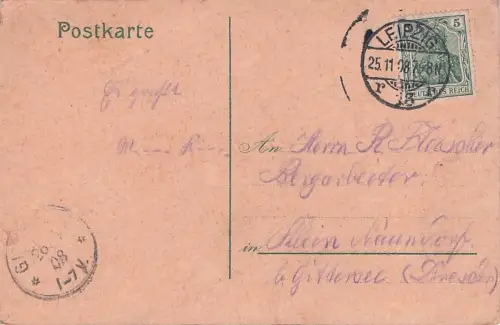 Postkarte
5
DEUTSCHES REICH
LEIPZIG
25.11.08 7-8N
13
Es grüßt
An Herrn R Fleischer
Bergarbeiter
in Klein Naundorf
b/ Gittersee (Dresden)
GI
26
08
1-7V.